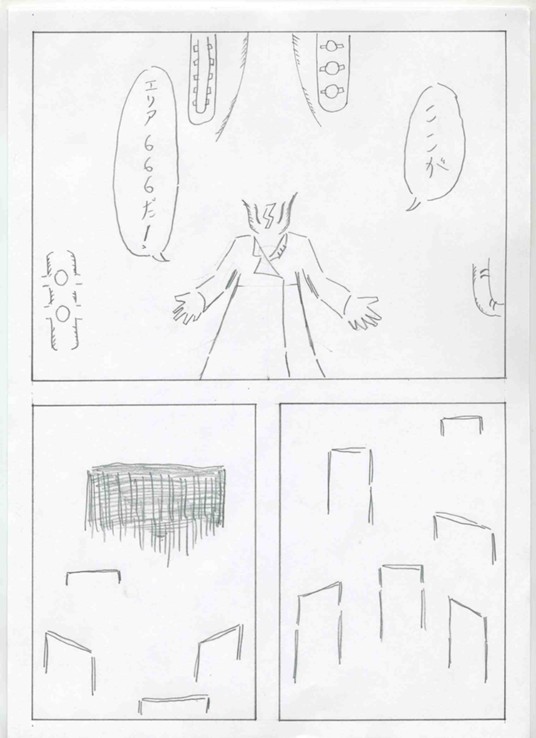 ここが
エリア666だ!